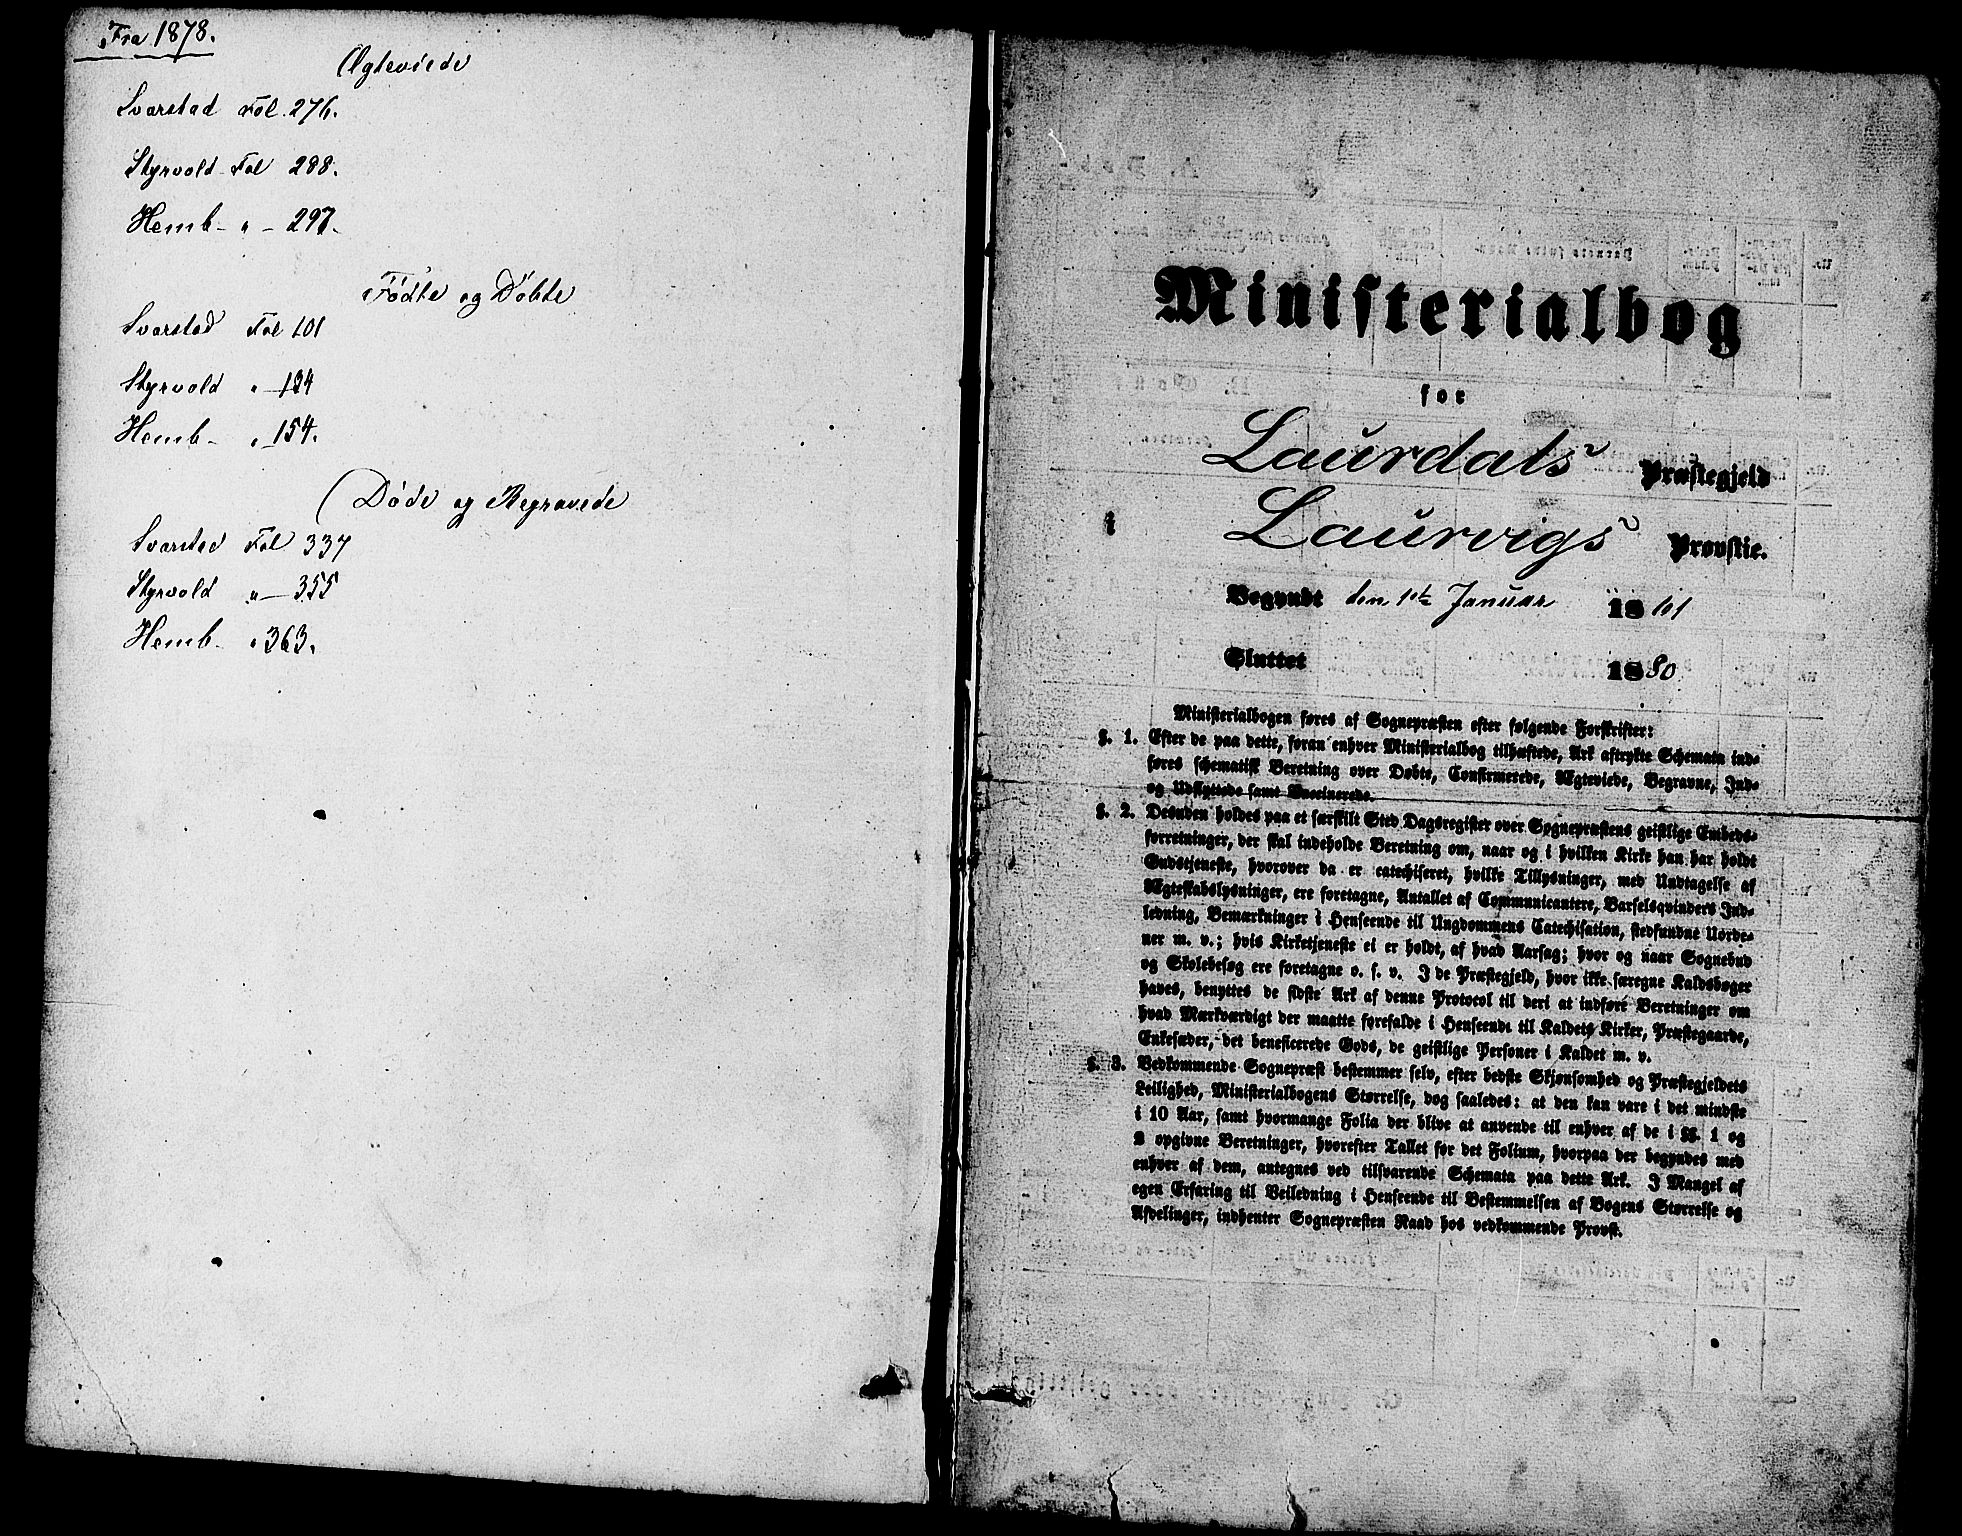 Fra 1878.
Ægteviede
Svarstad Fol. 276.
Styrvold Fol 288.
Hemb - " - 297.
Fødte og Døbte
Svarstad Fol 101
Styrvold " - 134
Hemb - " 154.
Døde og Begravede
Svarstad Fol 337
Styrvold " - 355
Hemb - " 363.
Ministerialbog
for
Laurdals Præstegjeld
i Laurvigs Provstie.
Begyndt den 1ste Januar 1861
Sluttet 1880.
Ministerialbogen føres af Sognepræsten efter følgende Forskrifter:
§. 1. Efter de paa dette, foran enhver Ministerialbog tilhæftede, Ark aftrykte Schemata ind-
føres schematisk Beretning over Døbte, Confirmerede, Ægteviede, Begravne, Ind-
og Udflyttede samt Vaccinerede.
§. 2. Desuden holdes paa et særskilt Sted Dagsregister over Sognepræstens geistlige Embeds-
forretninger, der skal indeholde Beretning om, naar og i hvilken Kirke han har holdt
Gudstjeneste, hvorover da er catechiseret, hvilke Tillysninger, med Undtagelse af
Ægteskabslysninger, ere foretagne, Antallet af Communicantere, Barselqvinders Ind-
ledning, Bemærkninger i Henseende til Ungdommens Catechisation, stedfundne Uorde-
ner m. v.; hvis Kirketjeneste ei er holdt, af hvad Aarsag; hvor og naar Sognebud
og Skolebesøg ere foretagne o. s. v. I de Præstegjeld, hvor ikke særegne Kaldsbøger
haves, benyttes de sidste Ark af denne Protocol til deri at indføre Beretninger om
hvad Mærkværdigt der maatte forefalde i Henseende til Kaldets Kirker, Præstegaarde,
Enkesæder, det beneficerede Gods, de geistlige Personer i Kaldet m. v.
§. 3. Vedkommende Sognepræst bestemmer selv, efter bedste Skjønsomhed og Præstegjeldets
Leilighed, Ministerialbogens Størrelse, dog saaledes: at den kan vare i det mindste
i 10 Aar, samt hvormange Folia der blive at anvende til enhver af de i §§. 1 og
2 opgivne Beretninger, hvorefter Tallet for det Folium, hvorpaa der begyndes med
enhver af dem, antegnes ved tilsvarende Schemata paa dette Ark. I Mangel af
egen Erfaring til Veiledning i Henseende til Bestemmelsen af Bogens Størrelse og
Afdelinger, indhenter Sognepræsten Raad hos vedkommende Provst.